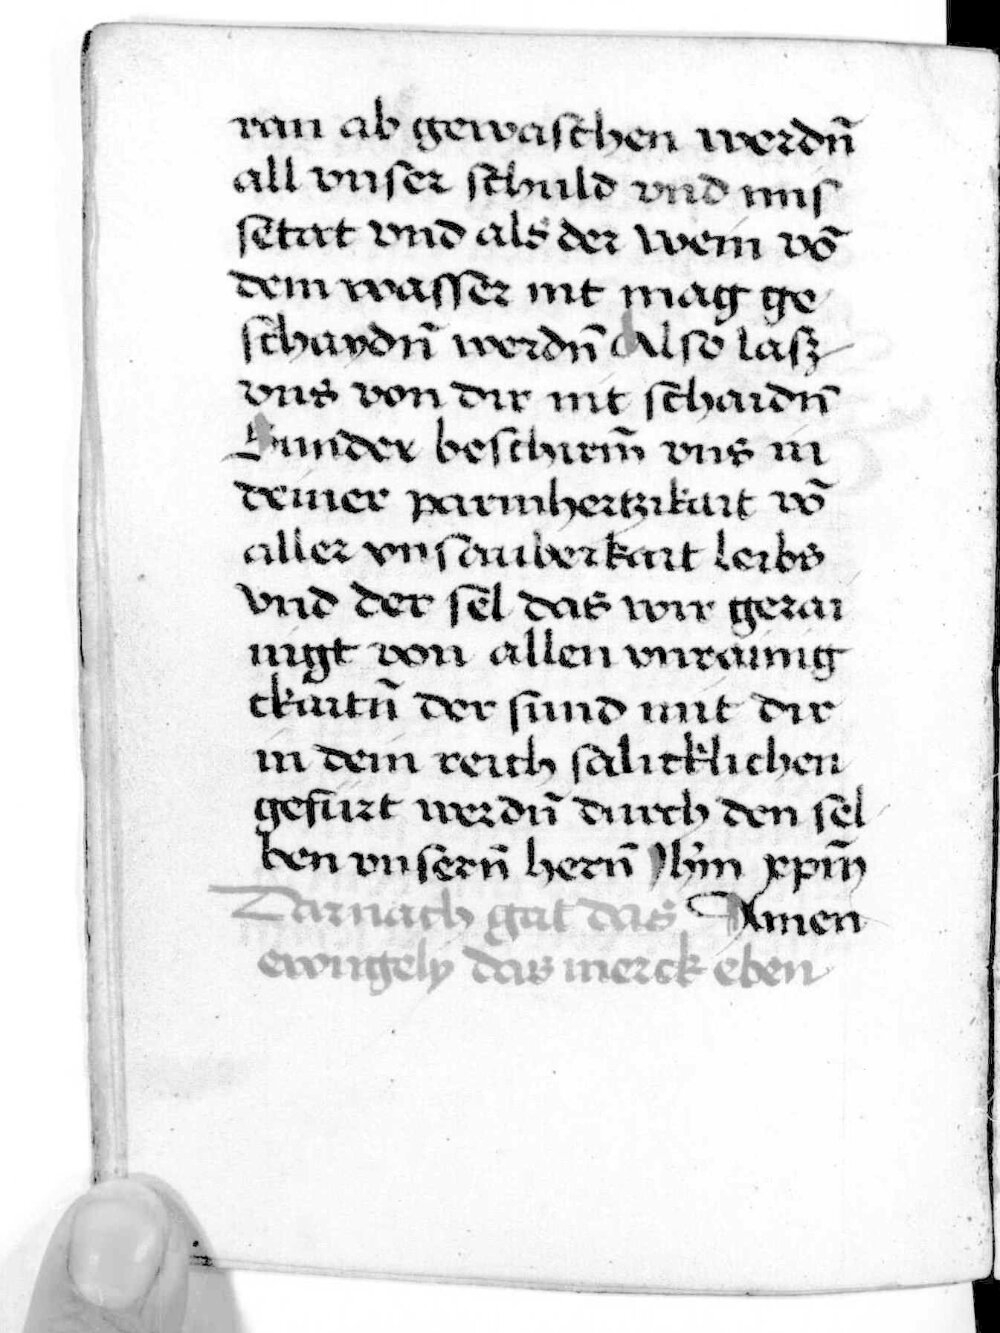 ran ab gewaschen werdn̄
all vnser schuld vnd mis
setat vnd als der wein vō
dem wasser nit mag ge
schaydn̄ werdn̄ Also lasz
vns von dir nit schaidn̄
Sunder beschirm̄ vns in
deiner parmhertzikait vō
aller vnsauberkait leibs
vnd der sel das wir gerai
nigt von allen vnrainig
ckaitn̄ der sund mit dir
in dein reich salicklichen
gefurt werdn̄ durch den sel
ben vnsern̄ hern̄ Jhm̄ xpm̄
Amen
Darnach gat das
ewngely das merck eben